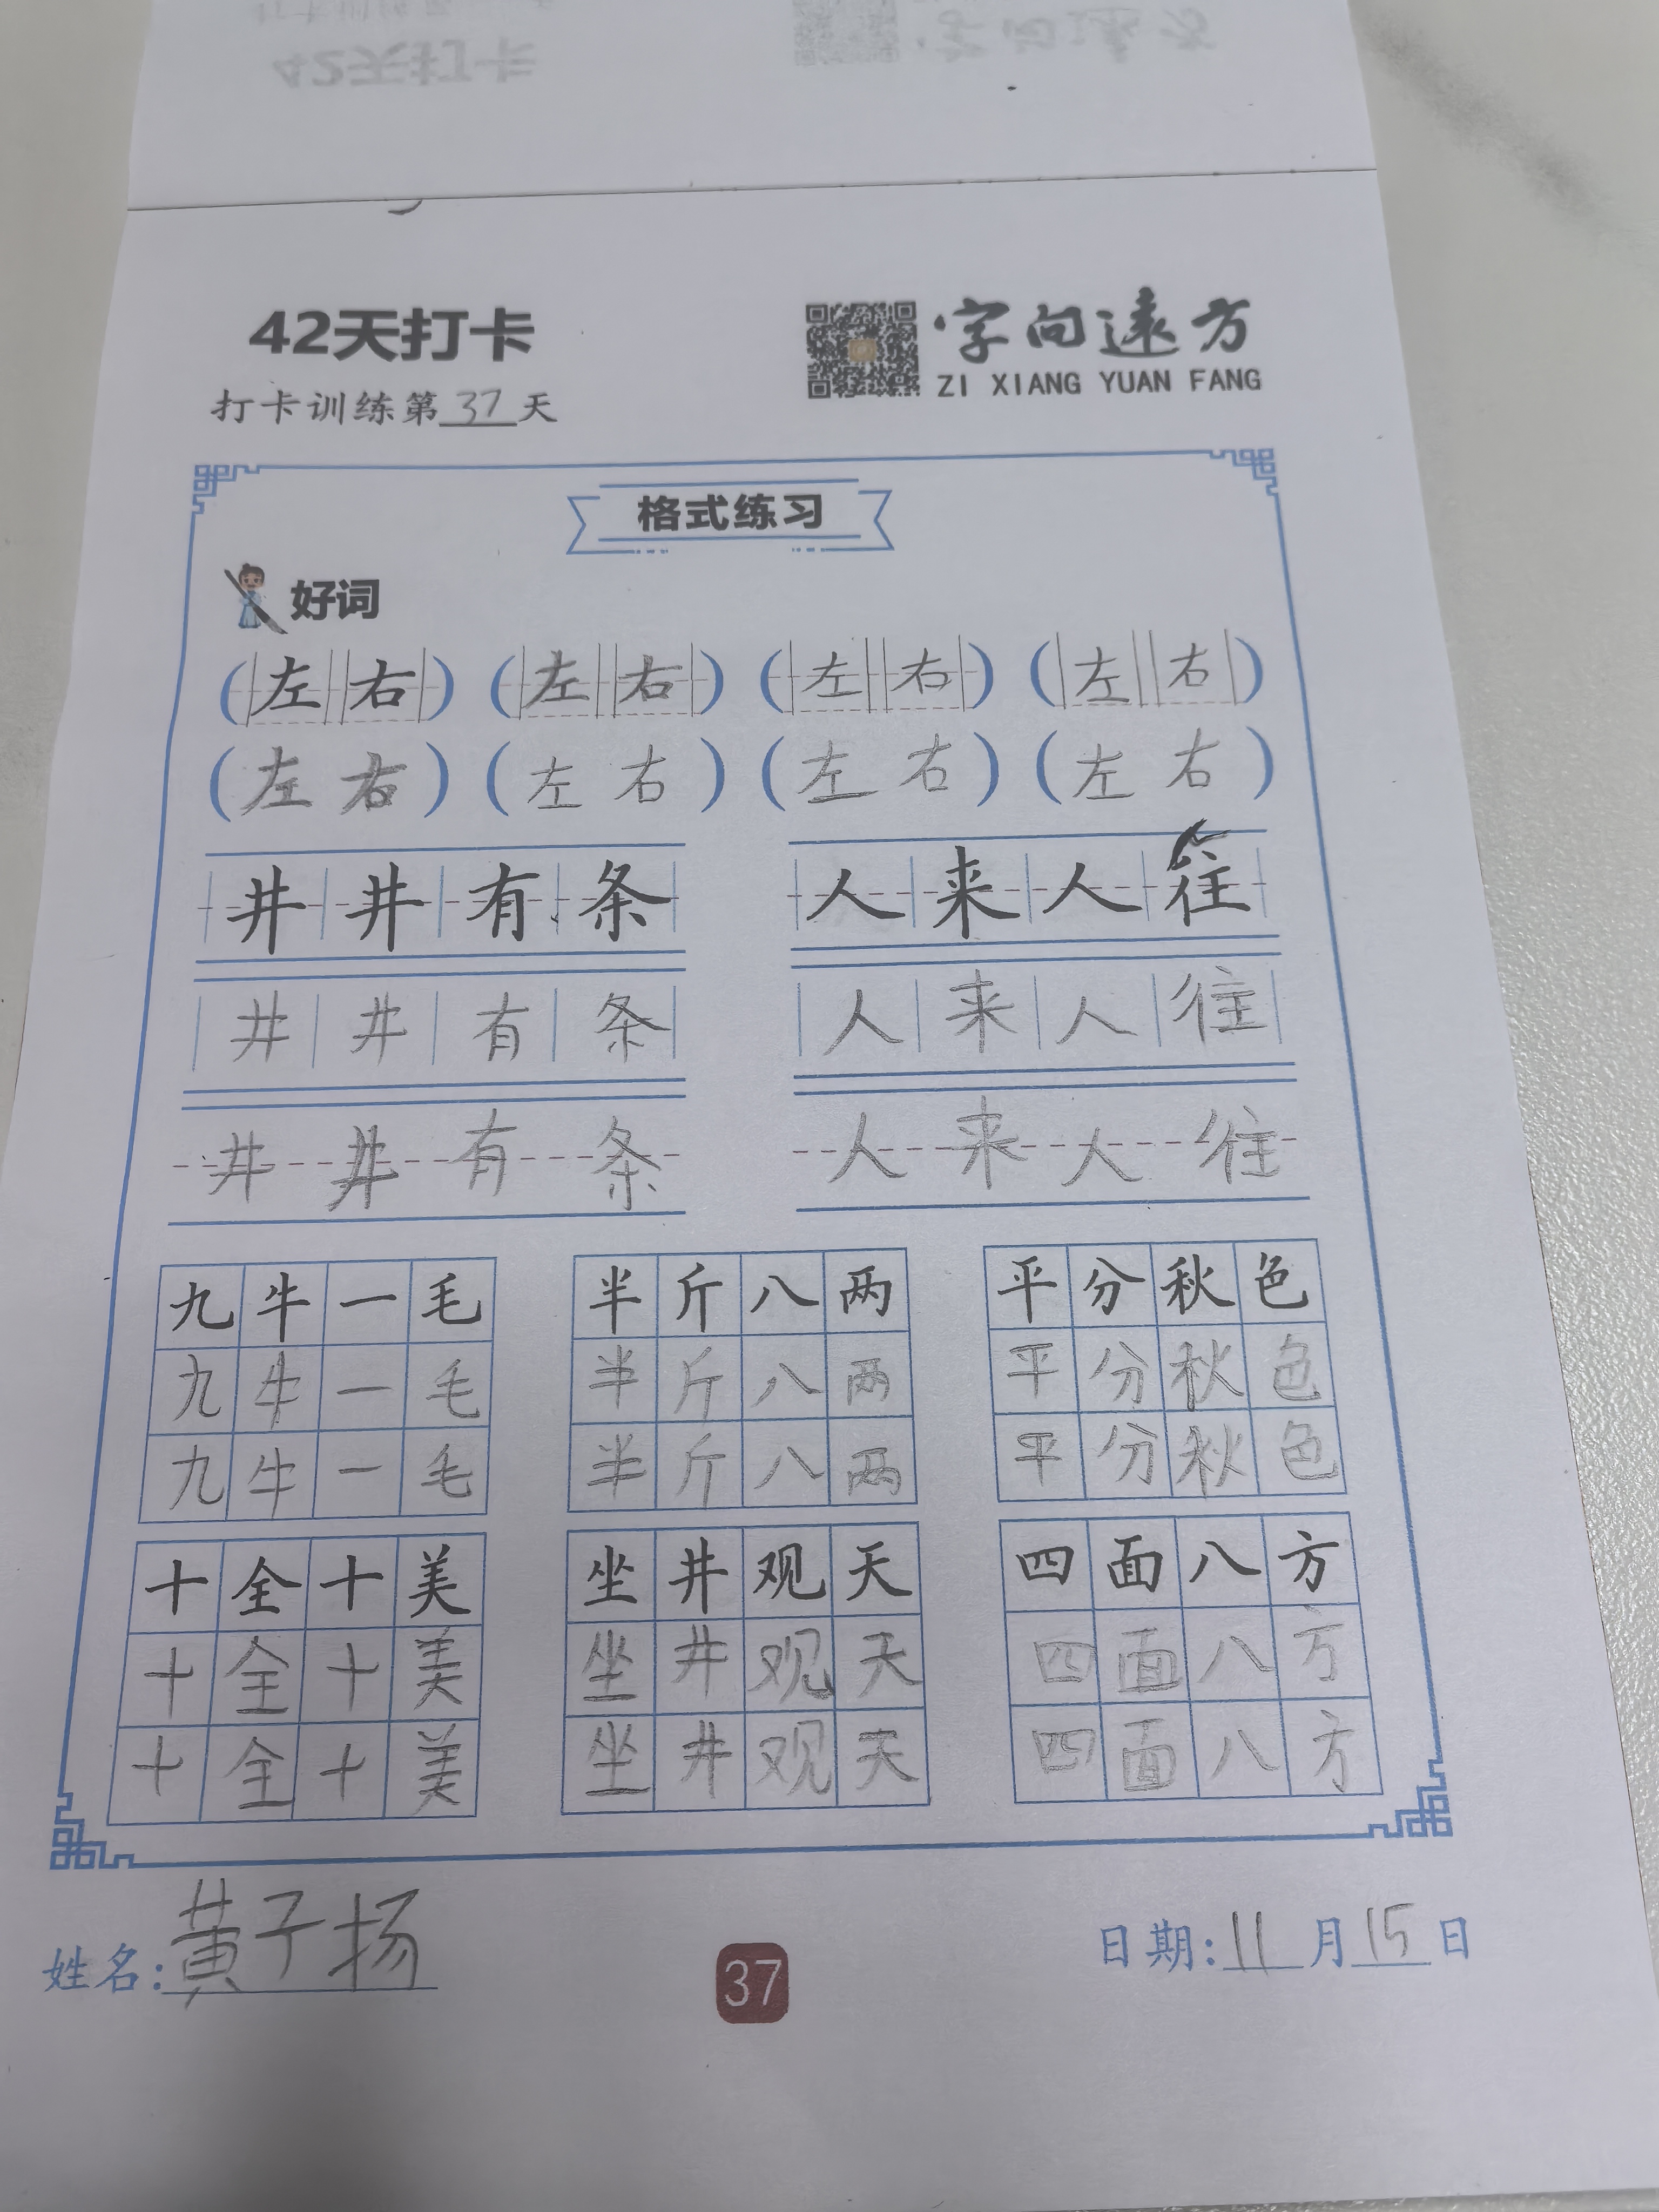 42天打卡
字向遠方
42天打卡
字向遠方
ZI XIANG YUAN FANG
打卡训练第37天
格式练习
好词
(左右) (左右) (左右) (左右)
(左右) (左右) (左右) (左右)
井井有条 人来人往
井井有条 人来人往
井井有条 人来人往
九牛一毛 半斤八两 平分秋色
九牛一毛 半斤八两 平分秋色
九牛一毛 半斤八两 平分秋色
十全十美 坐井观天 四面八方
十全十美 坐井观天 四面八方
十全十美 坐井观天 四面八方
姓名:黄子扬
37
日期:11月15日